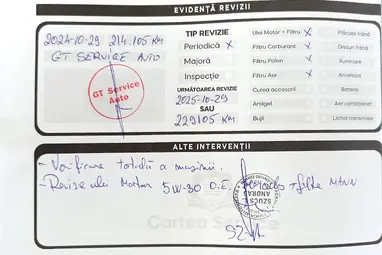 EVIDENȚĂ REVIZII
2024-10-29 214 105 KM
GT SERVICE AUTO
GT Service
Auto
TIP REVIZIE
Periodică X
Majoră
Inspecție
URMĂTOAREA REVIZIE
2025-10-29
SAU
229105 KM
Ulei Motor + Filtru X
Filtru Carburant X
Filtru Polen X
Filtru Aer X
Curea accesorii
Antigel
Bujii
Plăcuțe frână
Discuri frână
Iluminare
Anvelope
Baterie
Aer condiționat
Lichid transmisie
ALTE INTERVENȚII
- Verificare totală a mașinii.
- Revizie ulei Motor 5W-30 O.E. + filtre MANN
SZŰCS
ANDRÁS
Cartea Service